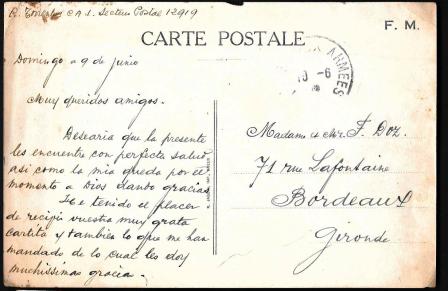 R. Torrent C A 1. Secteur Postal 12919
CARTE POSTALE
F. M.
ARMEES
10 - 6
Domingo a 9 de junio
Muy queridos amigos.
Desearia que la presente
les encuentre con perfecta salud
asi como la mia queda por el
momento a Dios dando gracias
He tenido el placer
de recijir vuestra muy grata
cartita y tambien lo que me han
mandado de lo cual les doy
muchissimas gracia.
Madame et Mr. F. Doz.
71 rue Lafontaine
Bordeaux
Gironde